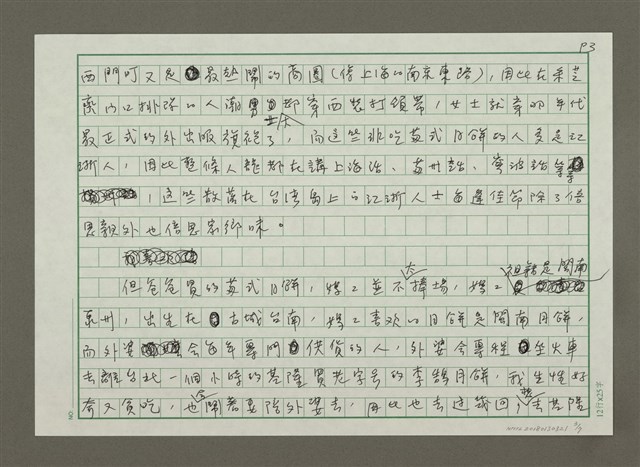 P3
西門町又是最熱鬧的商圈（像上海的南京東路），因此在采芝
齋門口排隊的人潮男士都穿西裝打領帶，女士就穿那年代
最正式的外出服旗袍了，而這些非吃蘇式月餅的人多是江
浙人，因此整條人龍都在講上海話、蘇州話、寧波話等等
，這些散落在台灣島上的江浙人士每逢佳節除了倍
思親外也倍思家鄉味。
但爸爸買的蘇式月餅，媽媽並不太捧場，媽媽祖籍是閩南
泉州，出生在古城台南，媽媽喜歡的月餅是閩南月餅，
而外婆會每年專門供貨的人，外婆會專程坐火車
去離台北一個小時的基隆買老字號的李鵠月餅，我生性好
奇又貪吃，也會鬧著要陪外婆去，因此也去過幾回，去基隆
12行×25字